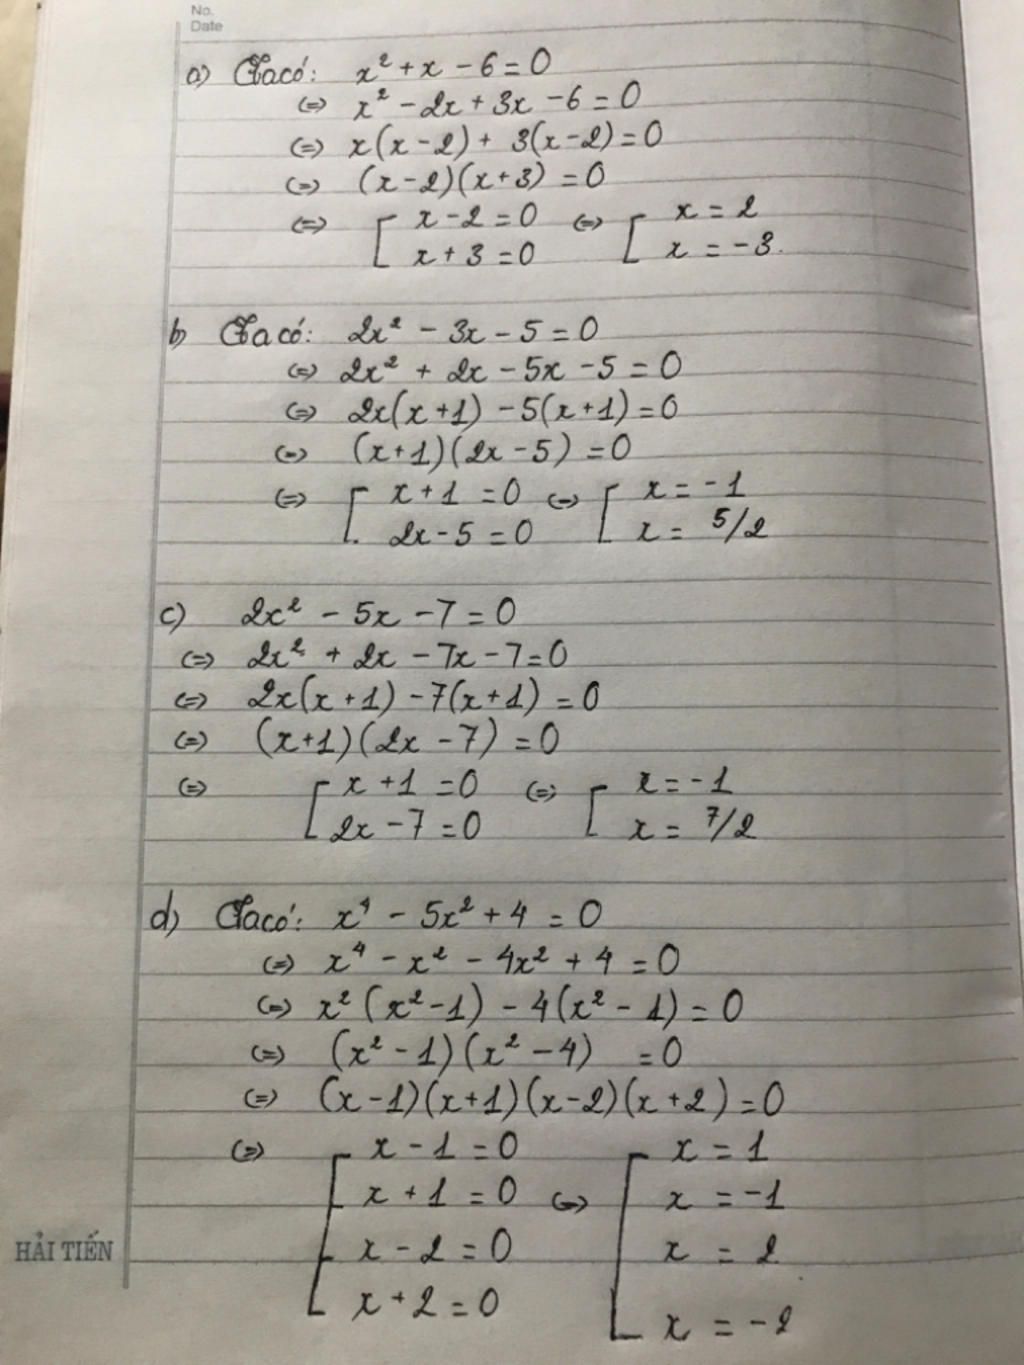 No.
Date
a) Ta có: x² + x - 6 = 0
(=) x² - 2x + 3x - 6 = 0
(=) x(x-2) + 3(x-2) = 0
(=) (x-2)(x+3) = 0
(=) [ x - 2 = 0 (=) [ x = 2
x + 3 = 0 x = -3.
b) Ta có: 2x² - 3x - 5 = 0
(=) 2x² + 2x - 5x - 5 = 0
(=) 2x(x+1) - 5(x+1) = 0
(=) (x+1)(2x-5) = 0
(=) [ x + 1 = 0 (=) [ x = -1
2x - 5 = 0 x = 5/2
c) 2x² - 5x - 7 = 0
(=) 2x² + 2x - 7x - 7 = 0
(=) 2x(x+1) - 7(x+1) = 0
(=) (x+1)(2x-7) = 0
(=) [ x + 1 = 0 (=) [ x = -1
2x - 7 = 0 x = 7/2
d) Ta có: x⁴ - 5x² + 4 = 0
(=) x⁴ - x² - 4x² + 4 = 0
(=) x²(x²-1) - 4(x²-1) = 0
(=) (x²-1)(x²-4) = 0
(=) (x-1)(x+1)(x-2)(x+2) = 0
(=) [ x - 1 = 0 [ x = 1
x + 1 = 0 (=) x = -1
x - 2 = 0 x = 2
x + 2 = 0 x = -2
HẢI TIẾN